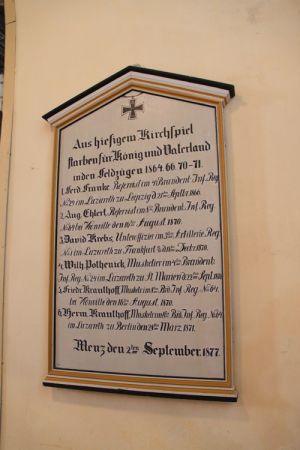 Aus hiesigem Kirchspiel
starben für König und Vaterland
in den Feldzügen 1864. 66. 70-71.
1. Ferd. Franke, Reservist im Brandent. Inf. Reg.
No 24 im Lazareth zu Leipzig d. Aug. 1866.
2. Aug. Ehlert, Reservist im Brandent. Inf. Reg.
bei Vionville den 16ten August 1870.
3. David Krebs, Unterofficier im Artillerie Reg.
im Lazareth zu Frankfurt 1870.
4. Wilh. Pothenick, Musketier im 4ten Brandent.
Inf. Reg. No 24 im Lazareth zu St. Marien d.
5. Friedr. Kraulhoff, Musketier im Inf. Reg. No 64.
bei Vionville den 16ten August. 1870.
6. Herm. Kraulhoff, Musketier im Inf. Reg. No 64
im Lazareth zu Berlin den März. 1871.
Menz den 2ten September. 1877.